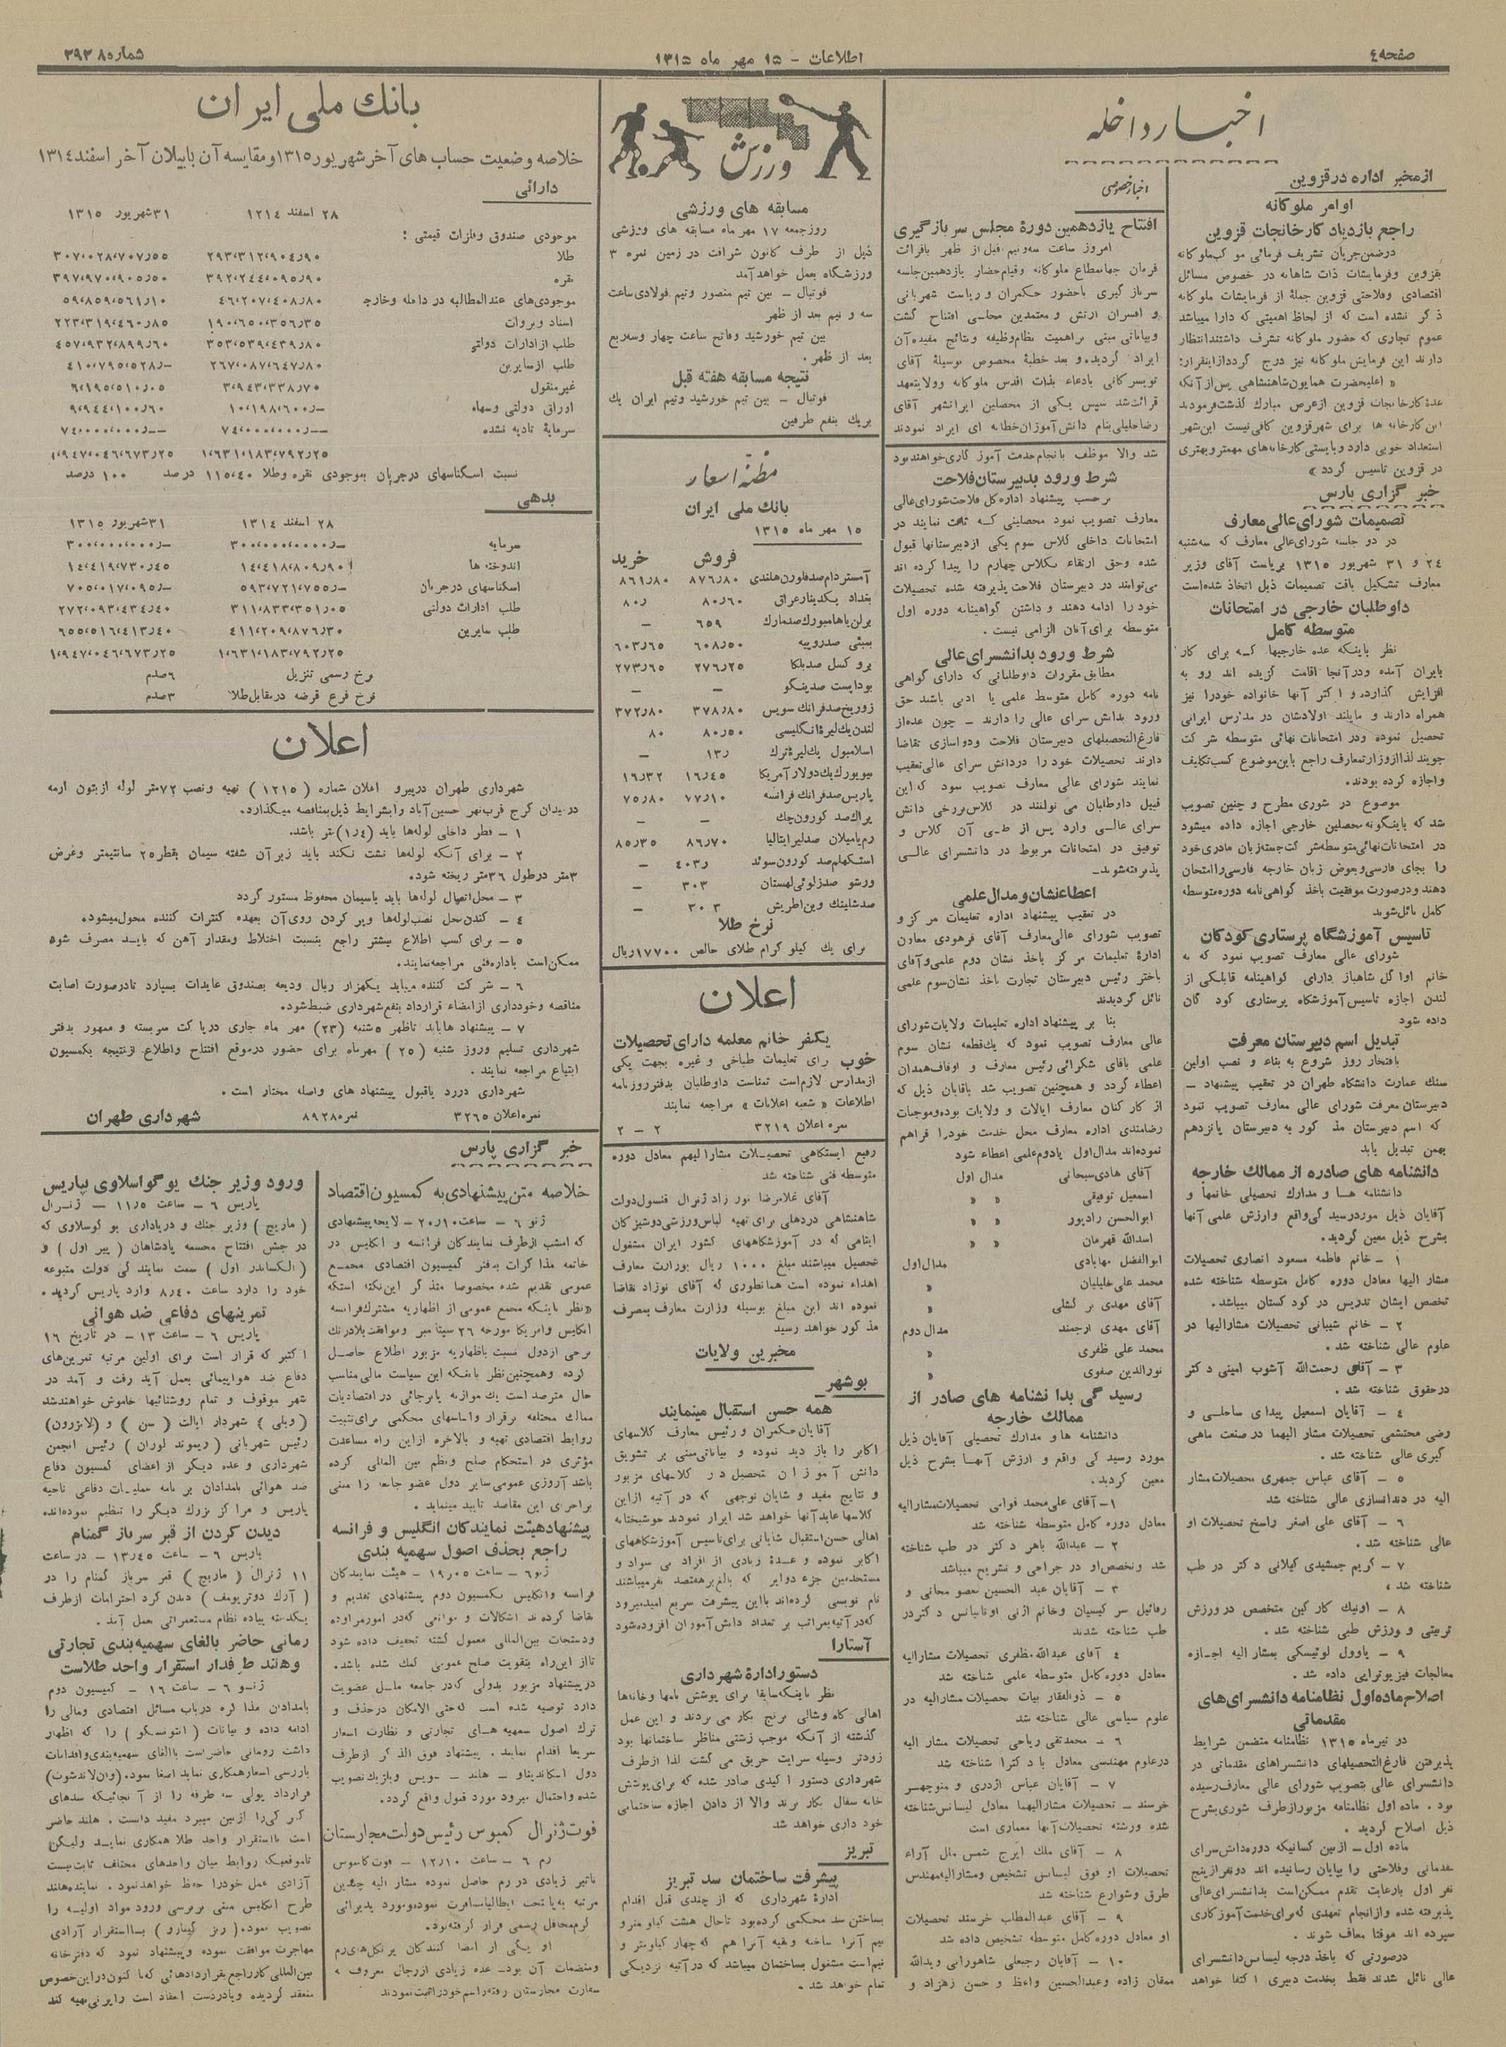 صفحه ٤
اطلاعات - ١٥ مهر ماه ١٣١٥
شماره ٢٩٣٨
اخبار داخله
از مخبر اداره در قزوین
اوامر ملوکانه
راجع بازدیاد کارخانجات قزوین
در ضمن جریان تشریف فرمائی موکب ملوکانه
بقزوین و فرمایشات ذات شاهانه در خصوص مسائل
اقتصادی و فلاحتی قزوین جملۀ از فرمایشات ملوکانه
ذکر نشده است که از لحاظ اهمیتی که دارا میباشد
عموم تجاری که حضور ملوکانه تشرف داشتند انتظار
دارند این فرمایش ملوکانه نیز درج گردد از اینقرار:
« اعلیحضرت همایون شاهنشاهی پس از آنکه
عدۀ کارخانجات قزوین از عرض مبارک گذشت فرمودند
این کارخانه ها برای شهر قزوین کافی نیست این شهر
استعداد خوبی دارد و بایستی کارخانه‌های مهمتر و بهتری
در قزوین تاسیس گردد »
خبر گزاری پارس
تصمیمات شورای عالی معارف
در دو جلسه شورای عالی معارف که سه شنبه
٢٤ و ٣١ شهریور ١٣١٥ بریاست آقای وزیر
معارف تشکیل یافت تصمیمات ذیل اتخاذ شده است
داوطلبان خارجی در امتحانات
متوسطه کامل
نظر باینکه عده خارجیها که برای کار
بایران آمده و در آنجا اقامت گزیده اند رو به
افزایش گذارده و اکثر آنها خانواده خود را نیز
همراه دارند و مایلند اولادشان در مدارس ایرانی
تحصیل نموده و در امتحانات نهائی متوسطه شرکت
جویند لذا از وزارت معارف راجع باین موضوع کسب تکلیف
و اجازه کرده بودند.
موضوع در شوری مطرح و چنین تصویب
شد که باینگونه محصلین خارجی اجازه داده میشود
در امتحانات نهائی متوسطه شرکت جسته زبان مادری خود
را بجای فارسی و بعوض زبان خارجه فارسی را امتحان
دهند و در صورت موفقیت باخذ گواهی نامه دوره متوسطه
کامل نائل شوند
تاسیس آموزشگاه پرستاری کودکان
شورای عالی معارف تصویب نمود که به
خانم اواگل شاهباز دارای گواهینامه قابلگی از
لندن اجازه تاسیس آموزشگاه پرستاری کودکان
داده شود
تبدیل اسم دبیرستان معرفت
بافتخار روز شروع به بناء و نصب اولین
سنک عمارت دانشگاه طهران در تعقیب پیشنهاد -
دبیرستان معرفت شورای عالی معارف تصویب نمود
که اسم دبیرستان مذکور به دبیرستان پانزدهم
بهمن تبدیل یابد
دانشنامه های صادره از ممالک خارجه
دانشنامه ها و مدارک تحصیلی خانمها و
آقایان ذیل مورد رسیدگی واقع و ارزش علمی آنها
بشرح ذیل معین گردید.
١ - خانم فاطمه مسعود انصاری تحصیلات
مشار الیها معادل دوره کامل متوسطه شناخته شده
تخصص ایشان تدریس در کودکستان میباشد.
٢ - خانم شیبانی تحصیلات مشارالیها در
علوم عالی شناخته شد.
٣ - آقای رحمت الله آشوب امینی دکتر
در حقوق شناخته شد.
٤ - آقایان اسمعیل پیدای ساحلی و
رضی محتشمی تحصیلات مشار الیهما در صنعت ماهی
گیری عالی شناخته شد.
٥ - آقای عباس جمهری تحصیلات مشار
الیه در دندانسازی عالی شناخته شد
٦ - آقای علی اصغر راسخ تحصیلات او
عالی شناخته شد.
٧ - کریم جمشیدی گیلانی دکتر در طب
شناخته شد
٨ - اونیک کارکین متخصص در ورزش
تربیتی و ورزش طبی شناخته شد.
٩ - پاوول لوتیسکی بمشار الیه اجازه
معالجات فیزیوتراپی داده شد.
اصلاح ماده اول نظامنامه دانشسرای‌های
مقدماتی
در تیر ماه ١٣١٥ نظامنامه متضمن شرایط
پذیرفتن فارغ التحصیلهای دانشسراهای مقدماتی در
دانشسرای عالی بتصویب شورای عالی معارف رسیده
بود. ماده اول نظامنامه مزبور از طرف شوری بشرح
ذیل اصلاح گردید.
ماده اول - از بین کسانیکه دوره دانش سرای
مقدماتی و فلاحتی را بپایان رسانیده اند دو نفر از پنج
نفر اول با رعایت تقدم ممکن است بدانشسرای عالی
پذیرفته شده و از انجام تعهدی که برای خدمت آموزگاری
سپرده اند موقتا معاف شوند.
در صورتی که باخذ درجه لیسانس دانشسرای
عالی نائل شدند فقط بخدمت دبیری اکتفا خواهد
اخبار خصوصی
افتتاح یازدهمین دورۀ مجلس سربازگیری
امروز ساعت سه و نیم قبل از ظهر با قرائت
فرمان جهانمطاع ملوکانه و قیام حضار یازدهمین جلسه
سربازگیری با حضور حکمران و ریاست شهربانی
و افسران ارتش و معتمدین محلی افتتاح گشت
و بیاناتی مبنی بر اهمیت نظام وظیفه و نتایج مفیده آن
ایراد گردید، و بعد خطبۀ مخصوص بوسیلۀ آقای
تویسرکانی با دعاء بذات اقدس ملوکانه و ولایتعهد
قرائت شد سپس یکی از محصلین ایرانشهر آقای
رضا خلیلی بنام دانش آموزان خطابه ای ایراد نمودند
شد والا موظف بانجام خدمت آموزگاری خواهند بود
شرط ورود بدبیرستان فلاحت
بر حسب پیشنهاد اداره کل فلاحت شورای عالی
معارف تصویب نمود محصلینی که ثبت نمایند در
امتحانات داخلی کلاس سوم یکی از دبیرستانها قبول
شده و حق ارتقاء بکلاس چهارم را پیدا کرده اند
می‌توانند در دبیرستان فلاحت پذیرفته شده تحصیلات
خود را ادامه دهند و داشتن گواهینامه دوره اول
متوسطه برای آنان الزامی نیست.
شرط ورود بدانشسرای عالی
مطابق مقررات داوطلبانی که دارای گواهی
نامه دوره کامل متوسط علمی یا ادبی باشند حق
ورود بدانش سرای عالی را دارند - چون عده از
فارغ التحصیلهای دبیرستان فلاحت و دواسازی تقاضا
دارند تحصیلات خود را در دانش سرای عالی تعقیب
نمایند شورای عالی معارف تصویب نمود که این
قبیل داوطلبان می توانند در کلاس برزخی دانش
سرای عالی وارد پس از طی آن کلاس و
توفیق در امتحانات مربوط در دانشسرای عالی
پذیرفته شوند.
اعطاء نشان و مدال علمی
در تعقیب پیشنهاد اداره تعلیمات مرکز و
تصویب شورای عالی معارف آقای فرهودی معاون
ادارۀ تعلیمات مرکز باخذ نشان دوم علمی و آقای
باختر رئیس دبیرستان تجارت باخذ نشان سوم علمی
نائل گردیدند
بنا بر پیشنهاد اداره تعلیمات ولایات شورای
عالی معارف تصویب نمود که یک قطعه نشان سوم
علمی باقای شکرائی رئیس معارف و اوقاف همدان
اعطاء گردد و همچنین تصویب شد باقایان ذیل که
از کارکنان معارف ایالات و ولایات بوده و موجبات
رضامندی اداره معارف محل خدمت خود را فراهم
نموده اند مدال اول یا دوم علمی اعطاء شود
آقای هادی سبحانی مدال اول
اسمعیل توفیقی « «
ابوالحسن رادپور « «
اسدالله قهرمان « «
ابوالفضل مهابادی مدال اول
محمد علی خلیلیان «
آقای مهدی برکشلی «
آقای مهدی ارجمند مدال دوم
محمد علی ظفری «
نورالدین صفوی «
رسیدگی بدانشنامه های صادر از
ممالک خارجه
دانشنامه ها و مدارک تحصیلی آقایان ذیل
مورد رسیدگی واقع و ارزش آنها بشرح ذیل
معین گردید.
١- آقای علی محمد فوامی تحصیلات مشار الیه
معادل دوره کامل متوسطه شناخته شد
٢ - عبدالله باهر دکتر در طب شناخته
شد و تخصص او در جراحی و تشریح میباشد
٣ - آقایان عبد الحسین معصو محانی و
رفائیل سرکیسیان و خانم اژنی اوتانیانس دکتر در
طب شناخته شدند
٤ آقای عبدالله مظفری تحصیلات مشارالیه
معادل دوره کامل متوسطه علمی شناخته شد
٥ - ذوالفقار بیات تحصیلات مشارالیه در
علوم سیاسی عالی شناخته شد
٦ - محمد تقی ریاحی تحصیلات مشار الیه
در علوم مهندسی معادل با دکترا شناخته شد
٧ - آقایان عباس اژدری و منوچهر
خرسند - تحصیلات مشارالیهما معادل لیسانس شناخته
شده و رشته تحصیلات آنها معماری است
٨ - آقای ملک ایرج شمس مال آراء
تحصیلات او فوق لیسانس تشخیص و مشارالیه مهندس
طرق و شوارع شناخته شد
٩ - آقای عبدالمطلب خرسند تحصیلات
او معادل دوره کامل متوسطه تشخیص داده شد
١٠ - آقایان رجبعلی شاهورانی و یدالله
معقان زاده و عبدالحسین واعظ و حسن زهزاد و
ورزش
مسابقه های ورزشی
روز جمعه ١٧ مهر ماه مسابقه های ورزشی
ذیل از طرف کانون شرافت در زمین نمره ٣
ورزشگاه بعمل خواهد آمد
فوتبال - بین تیم منصور و تیم فولادی ساعت
سه و نیم بعد از ظهر
بین تیم خورشید و فاتح ساعت چهار و سه ربع
بعد از ظهر.
نتیجه مسابقه هفته قبل
فوتبال - بین تیم خورشید و تیم ایران یک
بریک بنفع طرفین
مظنه اسعار
بانک ملی ایران
١٥ مهر ماه ١٣١٥
فروش خرید
آمستردام صد فلورن هلندی ٨٧٦٫٨٠ ٨٦١٫٨٠
بغداد یکدینار عراق ٨٠٫٦٠ ٫٨٠
برلن یا هامبورک صد مارک ٦٥٩ -
بمبئی صد روپیه ٦٠٨٫٥٠ ٦٠٣٫٦٥
بروکسل صد بلکا ٢٧٦٫٢٥ ٢٧٣٫٦٥
بوداپست صد پنگو - -
زوریخ صد فرانک سویس ٣٧٨٫٨٠ ٣٧٢٫٨٠
لندن یک لیرۀ انگلیسی ٨٠٫٥٠ ٨٠
اسلامبول یک لیرۀ ترک ٫١٣ -
نیویورک یک دولار آمریکا ١٦٫٤٥ ١٦٫٣٢
پاریس صد فرانک فرانسه ٧٧٫١٠ ٧٥٫٨٠
پراک صد کورون چک - -
رم یا میلان صد لیر ایتالیا ٨٦٫٧٠ ٨٥٫٣٥
استکهلم صد کورون سوئد ٫٤٠٣ -
ورشو صد زلوئی لهستان ٣٠٣ -
صد شلینک وین اطریش ٣٠٣ -
نرخ طلا
برای یک کیلو گرام طلای خالص ١٧٧٠٠ ریال
اعلان
یکنفر خانم معلمه دارای تحصیلات
خوب برای تعلیمات طباخی و غیره بجهت یکی
از مدارس لازم است تمناست داوطلبان بدفتر روزنامه
اطلاعات « شعبه اعلانات » مراجعه نمایند
نمره اعلان ٣٢١٩ ٢ - ٢
رفیع ایستگاهی تحصیلات مشارالیهم معادل دوره
متوسطه فنی شناخته شد
آقای غلامرضا نورزاد ژنرال قنسول دولت
شاهنشاهی در دهلی برای تهیه لباس ورزشی دوشیزگان
ایتامی که در آموزشگاههای کشور ایران مشغول
تحصیل میباشند مبلغ ١٠٠٠ ریال بوزارت معارف
اهداء نموده است همانطوری که آقای نوزاد تقاضا
نموده اند این مبلغ بوسیله وزارت معارف بمصرف
مذکور خواهد رسید
مخبرین ولایات
بوشهر
همه حسن استقبال مینمایند
آقایان حکمران و رئیس معارف کلاسهای
اکابر را باز دید نموده و بیاناتی مبنی بر تشویق
دانش آموزان تحصیل در کلاسهای مزبور
و نتایج مفید و شایان توجهی که در آتیه از این
کلاسها عاید آنها خواهد شد ایراد نمودند خوشبختانه
اهالی حسن استقبال شایانی برای تاسیس آموزشگاههای
اکابر نموده و عدۀ زیادی از افراد بی سواد و
مستخدمین جزء دوایر که بالغ بر هفتصد نفر میباشند
نام نویسی کرده‌اند با این پیشرفت سریع امید میرود
که در آتیه بمراتب بر تعداد دانش آموزان افزوده شود
آستارا
دستور ادارۀ شهرداری
نظر باینکه سابقا برای پوشش بامها و خانه‌ها
اهالی کاه و شالی برنج بکار می بردند و این عمل
گذشته از آنکه موجب زشتی مناظر ساختمانها بود
زودتر وسیله سرایت حریق می گشت لذا از طرف
شهرداری دستور اکیدی صادر شده که برای پوشش
خانه سفال بکار برند والا از دادن اجازه ساختمانی
خود داری خواهد شد
تبریز
پیشرفت ساختمان سد تبریز
ادارۀ شهرداری که از چندی قبل اقدام
بساختن سد محکمی کرده بود تا حال هشت کیلومتر و
نیم آنرا ساخته و بقیه آنرا هم که چهار کیلومتر و
نیم است مشغول ساختمان میباشد که در آتیه نزدیکی
تمام خواهد شد.
بانک ملی ایران
خلاصه وضعیت حساب های آخر شهریور ١٣١٥ و مقایسه آن با بیلان آخر اسفند ١٣١٤
دارائی
٢٨ اسفند ١٣١٤ ٣١ شهریور ١٣١٥
موجودی صندوق و فلزات قیمتی:
طلا ٢٩٣،٣١٢،٩٠٤٫٩٠ ٣٠٧،٠٢٨،٧٠٧٫٥٥
نقره ٣٩٢،٢٤٤،٠٩٥٫٩٠ ٣٩٧،٩٧٠،٩٠٥٫٥٠
موجودی‌های عند المطالبه در داخله و خارجه ٤٦،٢٠٧،٤٠٨٫٨٠ ٥٩،٨٥٩،٥٦١٫١٠
اسناد و بروات ١٩٠،٦٥٠،٣٥٦٫٣٥ ٢٢٣،٣١٩،٤٦٠٫٨٥
طلب از ادارات دولتی ٣٥٣،٥٣٩،٤٣٩٫٨٠ ٤٥٧،٩٣٢،٨٩٩٫٦٠
طلب از سایرین ٢٦٧،٠٨٧،٦٤٧٫٨٠ ٤١٠،٧٩٥،٥٢٨٫-
غیر منقول ٣،٩٤٣،٣٣٨٫٧٠ ٦،١٩٥،٥١٠٫٠٥
اوراق دولتی و سهام ١٠،١٩٨،٦٠٠٫- ٩،٩٤٤،١٠٠٫٦٠
سرمایۀ تادیه نشده ٧٤،٠٠٠،٠٠٠٫- ٧٤،٠٠٠،٠٠٠٫-
١،٦٣١،١٨٣،٧٩٢٫٢٥ ١،٩٤٧،٠٤٦،٦٧٣٫٢٥
نسبت اسکناسهای در جریان بموجودی نقره و طلا ١١٥٫٤٠ درصد ١٠٠ درصد
بدهی
٢٨ اسفند ١٣١٤ ٣١ شهریور ١٣١٥
سرمایه ٣٠٠،٠٠٠،٠٠٠٫- ٣٠٠،٠٠٠،٠٠٠٫-
اندوخته ها ١٤،٤١٨،٨٠٩٫٩٠ ١٤،٤١٩،٧٣٠٫٤٥
اسکناسهای در جریان ٥٩٣،٧٢١،٧٥٥٫- ٧٠٥،٠١٧،٠٩٥٫-
طلب ادارات دولتی ٣١١،٨٣٣،٣٥١٫٠٥ ٢٧٢،٠٩٣،٤٣٤٫٤٠
طلب سایرین ٤١١،٢٠٩،٨٧٦٫٣٠ ٦٥٥،٥١٦،٤١٣٫٤٠
١،٦٣١،١٨٣،٧٩٢٫٢٥ ١،٩٤٧،٠٤٦،٦٧٣٫٢٥
نرخ رسمی تنزیل ٦ صدم
نرخ فرع قرضه در مقابل طلا ٣ صدم
اعلان
شهرداری طهران در پیرو اعلان شماره (١٢١٥) تهیه و نصب ٧٢ متر لوله از بتون آرمه
در میدان کرج قرب نهر حسین آباد را بشرایط ذیل بمناقصه میگذارد.
١ - قطر داخلی لوله‌ها باید (١٫٤) متر باشد.
٢ - برای آنکه لوله‌ها نشت نکند باید زیر آن شفته سیمان بقطر ٢٥ سانتیمتر و عرض
٣ متر در طول ٣٦ متر ریخته شود.
٣ - محل اتصال لوله‌ها باید با سیمان محفوظ مستور گردد
٤ - کندن محل نصب لوله‌ها و پر کردن روی آن بعهده کنترات کننده محول میشود.
٥ - برای کسب اطلاع بیشتر راجع بنسبت اختلاط و مقدار آهن که باید مصرف شود
ممکن است باداره فنی مراجعه نمایند.
٦ - شرکت کننده میباید یکهزار ریال ودیعه بصندوق عایدات بسپارد تا در صورت اصابت
مناقصه و خودداری از امضاء قرارداد بنفع شهرداری ضبط شود.
٧ - پیشنهاد ها باید تا ظهر ٥ شنبه (٢٣) مهر ماه جاری در پاکت سربسته و ممهور بدفتر
شهرداری تسلیم و روز شنبه (٢٥) مهر ماه برای حضور در موقع افتتاح و اطلاع از نتیجه بکمسیون
ابتیاع مراجعه نمایند.
شهرداری در رد یا قبول پیشنهاد های واصله مختار است.
نمره اعلان ٣٢٦٥ نمره ٨٩٢٨ شهرداری طهران
خبر گزاری پارس
خلاصه متن پیشنهادی به کمسیون اقتصاد
ژنو ٦ - ساعت ٢٠٫١٠ - لایحه پیشنهادی
که امشب از طرف نمایندگان فرانسه و انگلیس در
خاتمه مذاکرات بدفتر کمسیون اقتصادی مجمع
عمومی تقدیم شده مخصوصا متذکر این نکته است که
«نظر باینکه مجمع عمومی از اظهاریه مشترک فرانسه
انگلیس و امریکا مورخه ٢٦ سپتامبر و موافقت بلادرنک
برخی از دول نسبت باظهاریه مزبور اطلاع حاصل
کرده و همچنین نظر باینکه این سیاست مالی مناسب
حال مترصد است یک موازنه پابرجائی در اقتصادیات
ممالک مختلفه برقرار و اساسهای محکمی برای تثبیت
روابط اقتصادی تهیه و بالاخره از این راه مساعدت
مؤثری در استحکام صلح و نظم بین المللی کرده
باشد آرزوی عمومی سایر دول عضو جامعه را مبنی
بر اجرای این مقاصد تایید مینماید.
پیشنهاد هیئت نمایندگان انگلیس و فرانسه
راجع بحذف اصول سهمیه بندی
ژنو ٦ - ساعت ١٩٫٠٥ - هیئت نمایندگان
فرانسه و انگلیس بکمسیون دوم پیشنهادی تقدیم و
تقاضا کرده‌اند اشکالات و موانعی که در امور مراوده
و دستجات بین المللی معمول گشته تخفیف داده شود
تا از این راه بتقویت صلح عمومی کمک شده باشد.
در پیشنهاد مزبور بدولی که در جامعه ملل عضویت
دارد توصیه شده است که حتی الامکان در حذف و
ترک اصول سهمیه های تجارتی و نظارت اسعار
سریعا اقدام نمایند. پیشنهاد فوق الذکر از طرف
دول اسکاندیناو - هلند - سویس و بلژیک تصویب
شده و احتمال میرود مورد قبول واقع گردد.
فوت ژنرال کمبوس رئیس دولت مجارستان
رم ٦ - ساعت ١٢٫١٠ - فوت کامبوس
تاثیر زیادی در رم حاصل نموده مشار الیه چندین
مرتبه به پایتخت ایطالیا مسافرت نموده و مورد پذیرائی
گرم محافل رسمی قرار گرفته بود.
او یکی از امضا کنندگان پروتکل‌های رم
و متضمنات آن بود. عده زیادی از رجال معروف به
سفارت مجارستان رفته و اسم خود را ثبت نمودند
ورود وزیر جنک یوگواسلاوی بپاریس
پاریس ٦ - ساعت ١١٫٥ - ژنرال
(ماریچ) وزیر جنک و دریاداری یوگوسلاوی که
در جشن افتتاح مجسمه پادشاهان (پیر اول) و
(الکساندر اول) سمت نمایندگی دولت متبوعه
خود را دارد ساعت ٨٫٤٠ وارد پاریس گردید.
تمرینهای دفاعی ضد هوائی
پاریس ٦ - ساعت ١٣ - در تاریخ ١٦
اکتبر که قرار است برای اولین مرتبه تمرین‌های
دفاع ضد هواپیمائی بعمل آید رفت و آمد در
شهر موقوف و تمام روشنائیها خاموش خواهند شد
(ویلی) شهردار ایالت (سن) و (لانژرون)
رئیس شهربانی (ریموند لوران) رئیس انجمن
شهرداری و عده دیگر از اعضای کمسیون دفاع
ضد هوائی بامدادان برنامه عملیات دفاعی ناحیه
پاریس و مراکز بزرک دیگر را تنظیم نموده‌اند
دیدن کردن از قبر سرباز گمنام
پاریس ٦ - ساعت ١٣٫٤٥ - در ساعت
١١ ژنرال (ماریچ) قبر سرباز گمنام را در
(آرک دوتریومف) دیدن کرد احترامات از طرف
یکدسته پیاده نظام مستعمراتی بعمل آمد.
رمانی حاضر بالغای سهمیه بندی تجارتی
و هلند طرفدار استقرار واحد طلاست
ژنو ٦ - ساعت ١٦ - کمیسیون دوم
بامدادان مذاکره در باب مسائل اقتصادی و مالی را
ادامه داده و بیانات (انتونسکو) را که اظهار
داشت رومانی حاضر است با الغای سهمیه بندی و اقدامات
بازرسی اسعار همکاری نماید اصغا نمود. (وان لاندشون)
قرارداد پولی سه طرفه را از آنجائیکه سدهای
گمرکی را از بین میبرد مفید دانست. هلند حاضر
است با استقرار واحد طلا همکاری نماید ولیکن
تا موقعیکه روابط میان واحدهای مختلف ثابت نیست
آزادی عمل خود را حفظ خواهد نمود. نماینده هلند
طرح انگلیس مبنی بر بررسی ورود مواد اولیه را
تصویب نمود، با استقرار آزادی
مهاجرت موافقت نموده و پیشنهاد نمود که دفتر خانه
بین المللی کار راجع بقراردادهائی که تا کنون در این خصوص
منعقد گردیده و یا در دست انعقاد است راپرتی تهیه کند